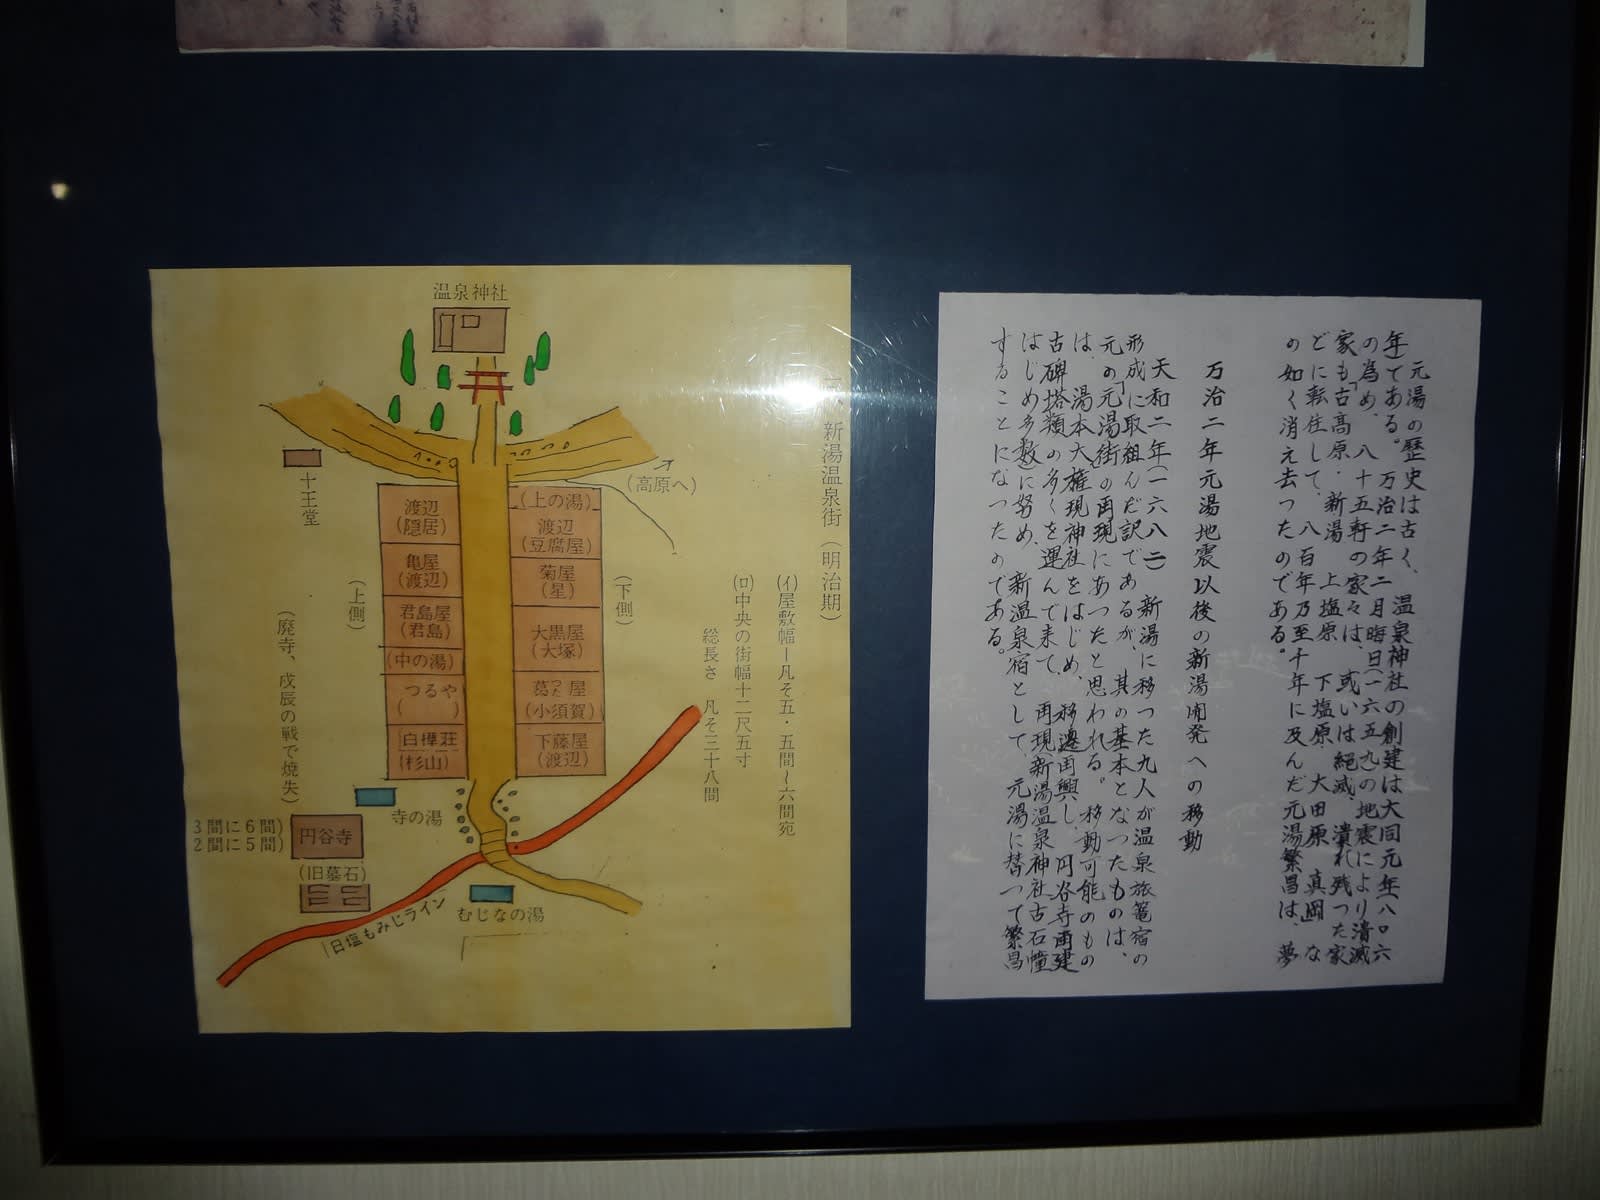 温泉神社
十王堂
(高原へ)
新湯温泉街(明治期)
(イ)屋敷幅ー凡そ五・五間〜六間宛
(ロ)中央の街幅十二尺五寸
総長さ 凡そ三十八間
(上側)
(下側)
渡辺
(隠居)
亀屋
(渡辺)
君島屋
(君島)
(中の湯)
つるや
(  )
白樺荘
(杉山)
(上の湯)
渡辺
(豆腐屋)
菊屋
(星)
大黒屋
(大塚)
葛つた屋
(小須賀)
下藤屋
(渡辺)
寺の湯
(廃寺、戊辰の戦で焼失)
3間に6間)
2間に5間)
円谷寺
(旧墓石)
むじなの湯
日塩もみじライン
元湯の歴史は古く、温泉神社の創建は大同元年八〇六
年である。万治二年二月晦日(一六五九)の地震により潰滅
の為め、八十五軒の家々は、或いは絶滅、潰れ残つた家
家も「古高原・新湯 上塩原 下塩原 大田原 真岡」な
どに転住して、八百年乃至千年に及んだ元湯繁昌は、夢
の如く消え去つたのである。
万治二年元湯地震以後の新湯開発への移動
天和二年(一六八二) 新湯に移つた九人が温泉旅篭宿の
形成に取組んだ訳であるが、其の基本となつたものは、
元の「元湯街」の再現にあつたと思われる。移動可能のもの
は、湯本大権現神社をはじめ、移遷再興し、円谷寺再建
古碑塔類の多くを運んで来て、再現(新湯温泉神社古石幢
はじめ多数)に努め、新温泉宿として、元湯に替つて繁昌
することになつたのである。